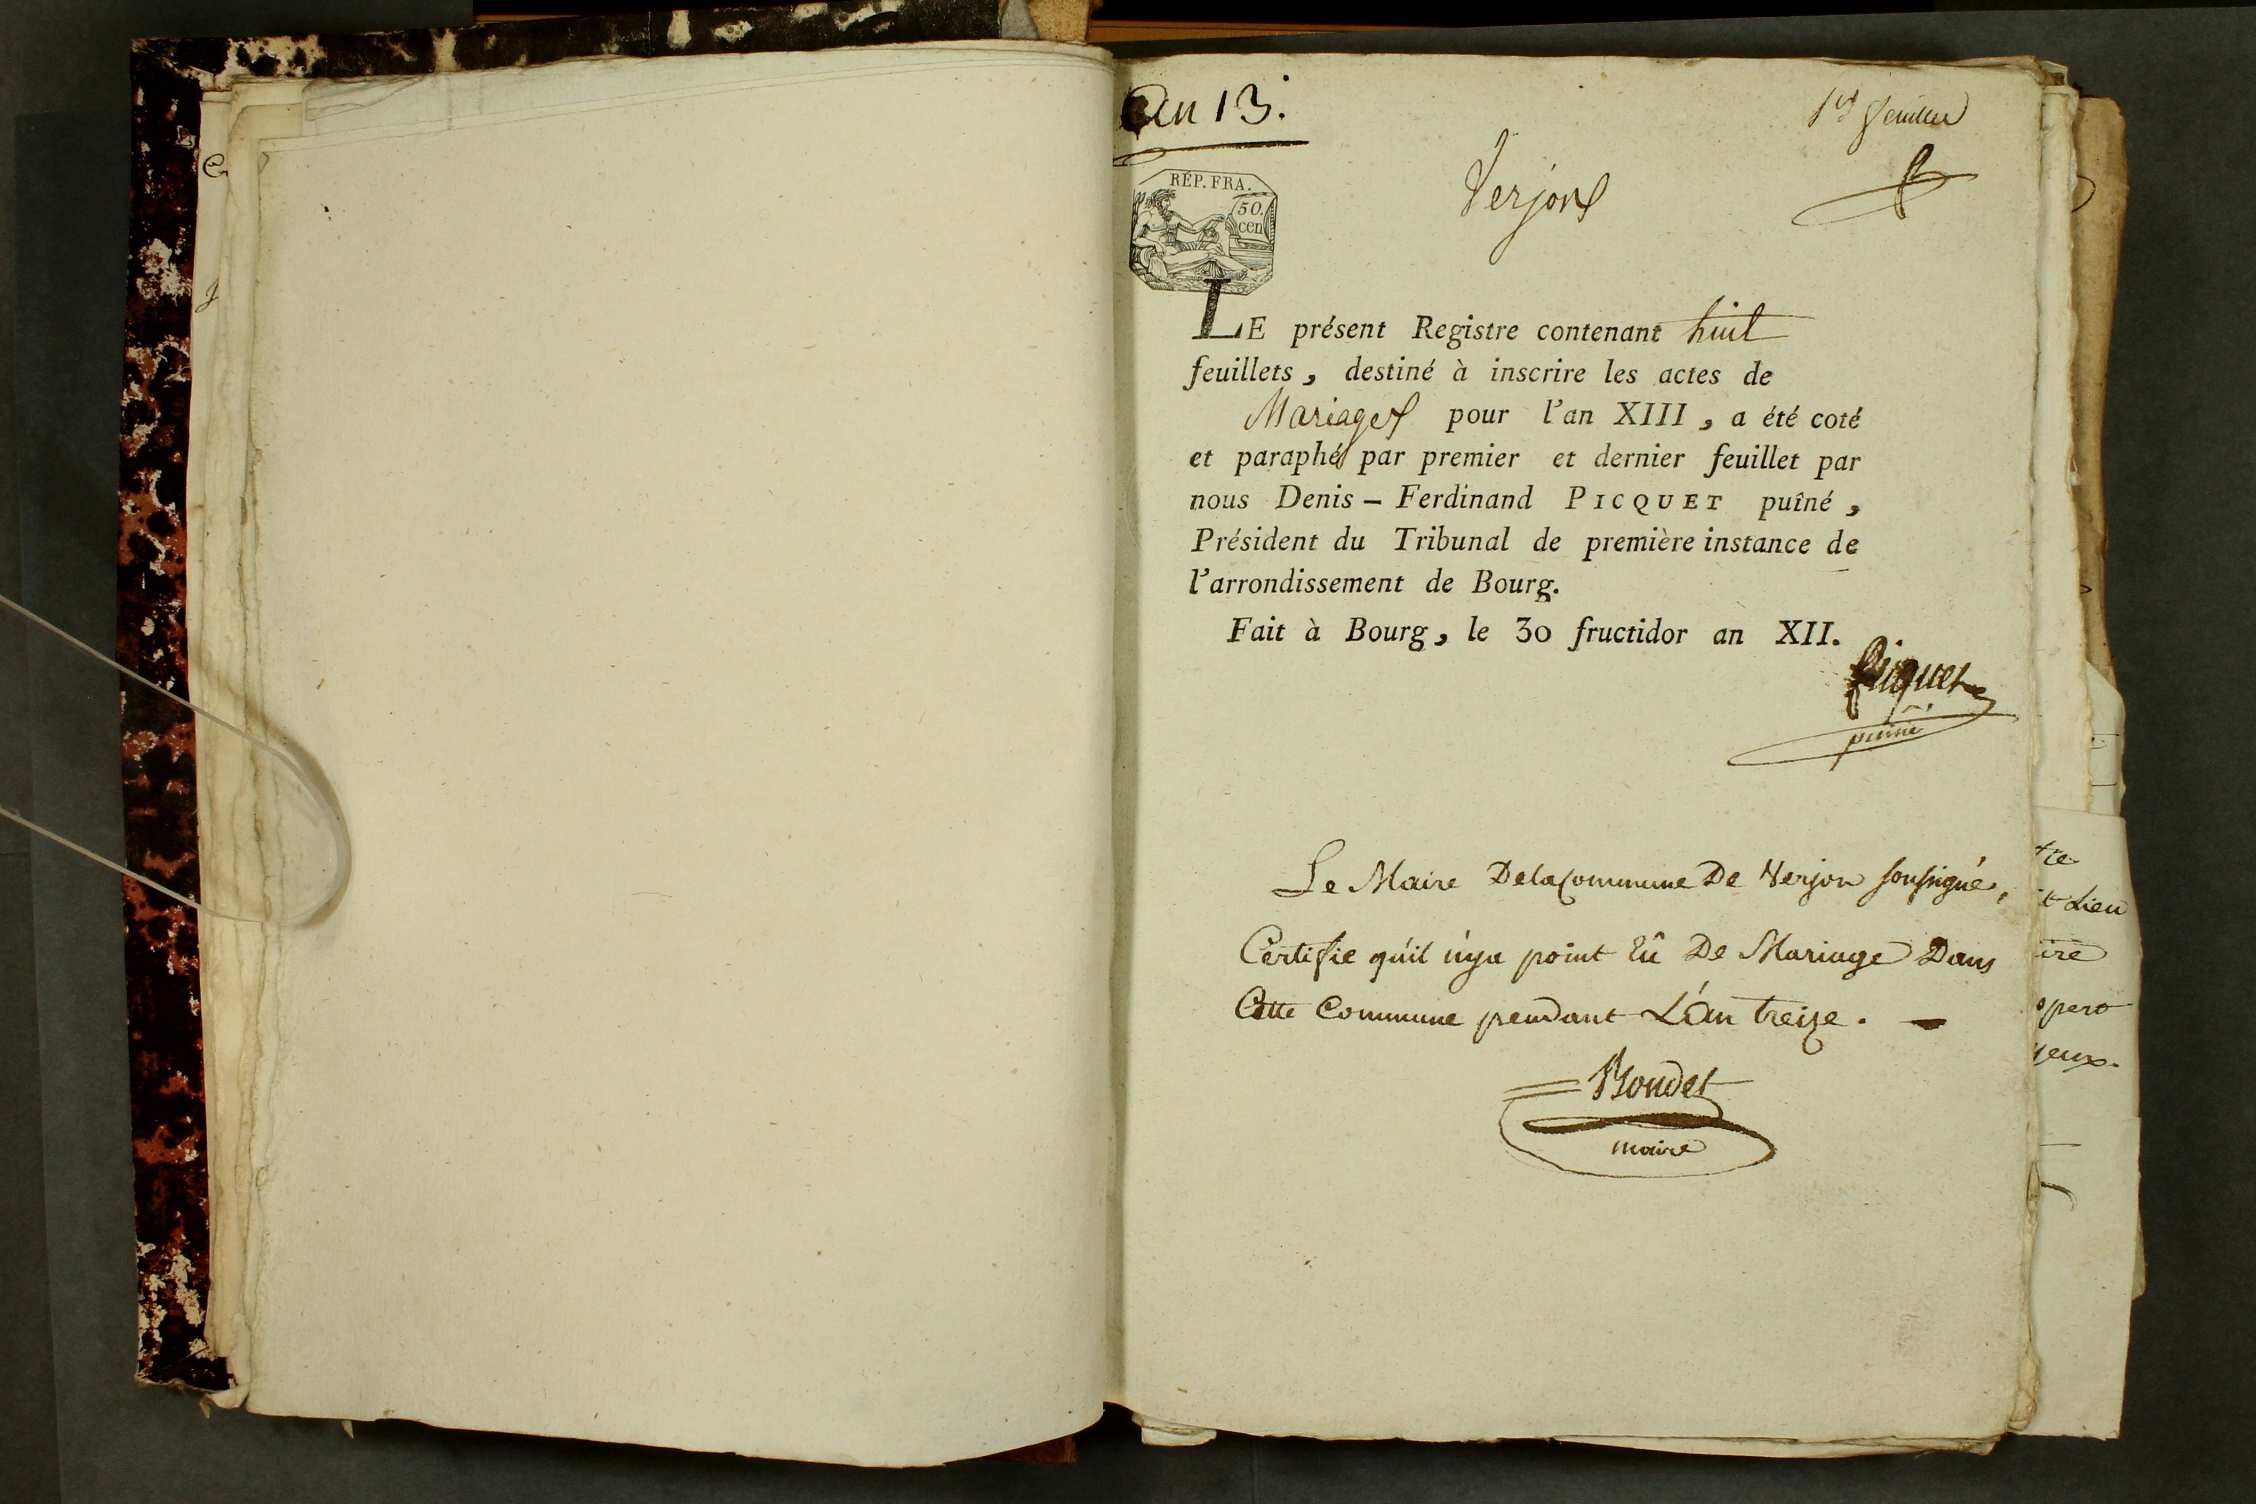 an 13.
1er feuillet
Verjon
RÉP. FRA.
50.
cen
LE présent Registre contenant huit
feuillets, destiné à inscrire les actes de
Mariages pour l'an XIII, a été coté
et paraphé par premier et dernier feuillet par
nous Denis-Ferdinand PICQUET puîné,
Président du Tribunal de première instance de
l'arrondissement de Bourg.
Fait à Bourg, le 30 fructidor an XII.
Picquet
puîné
Le Maire De la Commune De Verjon soussigné,
Certifie qu'il n'ya point Eû De Mariage Dans
Cette Commune pendant L'An treize. —
Bondet
maire
t Lieu
ire
yeux.